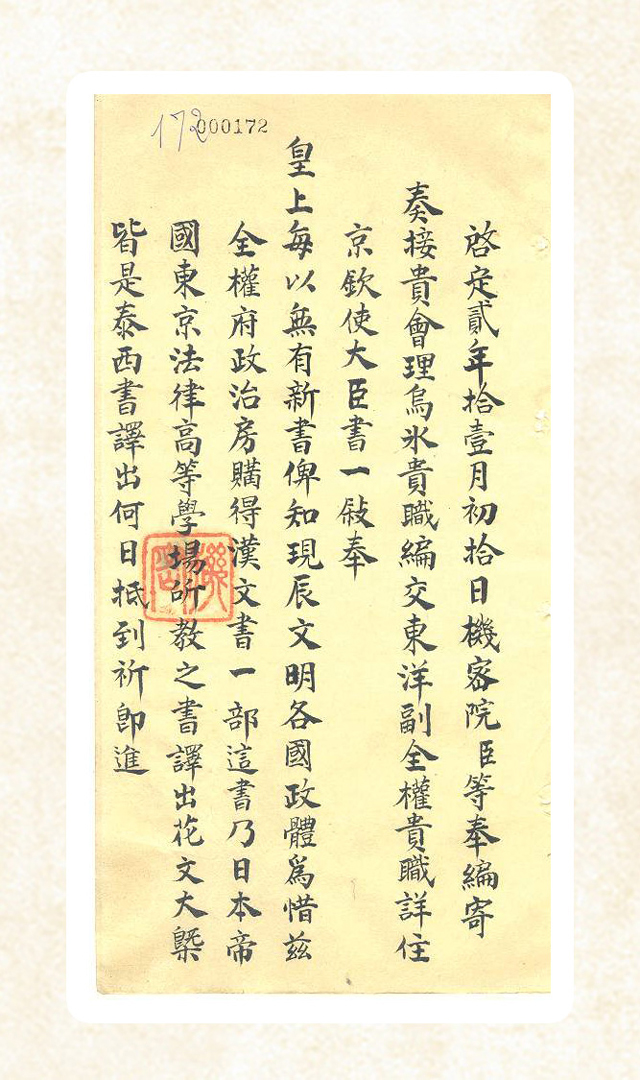 172
000172
啓定貳年拾壹月初拾日機密院臣等奉編寄
奏接貴會理烏氷貴職編交東洋副全權貴職詳住
京欽使大臣書一敍奉
皇上每以無有新書俾知現辰文明各國政體爲惜兹
全權府政治房購得漢文書一部這書乃日本帝
國東京法律高等學場所教之書譯出花文大槩
皆是泰西書譯出何日抵到祈卽進